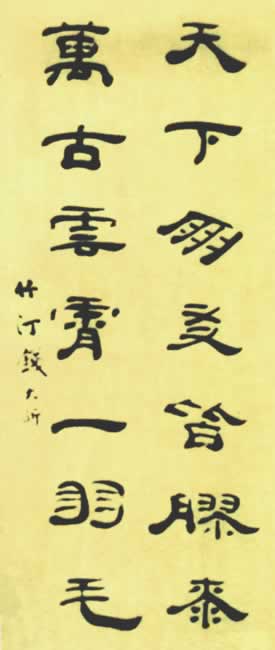 天下朋友皆膠桼
萬古雲霄一羽毛
竹汀錢大昕